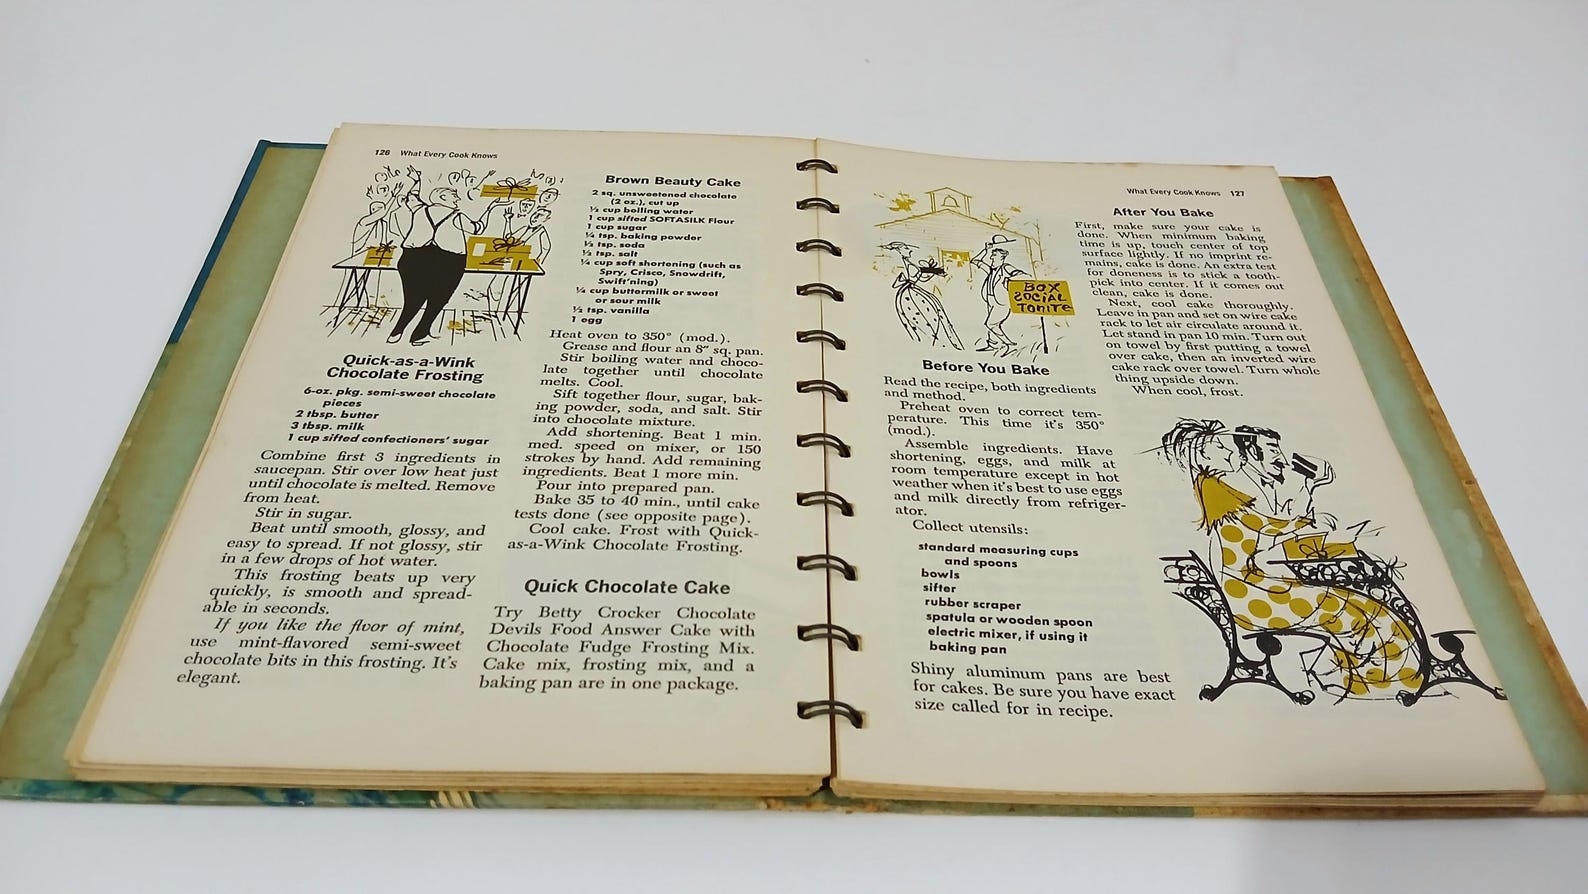 126 What Every Cook Knows
Quick-as-a-Wink
Chocolate Frosting
6-oz. pkg. semi-sweet chocolate
pieces
2 tbsp. butter
3 tbsp. milk
1 cup sifted confectioners' sugar
Combine first 3 ingredients in
saucepan. Stir over low heat just
until chocolate is melted. Remove
from heat.
Stir in sugar.
Beat until smooth, glossy, and
easy to spread. If not glossy, stir
in a few drops of hot water.
This frosting beats up very
quickly, is smooth and spread-
able in seconds.
If you like the flvor of mint,
use mint-flavored semi-sweet
chocolate bits in this frosting. It's
elegant.
Brown Beauty Cake
2 sq. unsweetened chocolate
(2 oz.), cut up
½ cup boiling water
1 cup sifted SOFTASILK Flour
1 cup sugar
¼ tsp. baking powder
½ tsp. soda
½ tsp. salt
¼ cup soft shortening (such as
Spry, Crisco, Snowdrift,
Swift'ning)
¼ cup buttermilk or sweet
or sour milk
½ tsp. vanilla
1 egg
Heat oven to 350° (mod.).
Grease and flour an 8" sq. pan.
Stir boiling water and choco-
late together until chocolate
melts. Cool.
Sift together flour, sugar, bak-
ing powder, soda, and salt. Stir
into chocolate mixture.
Add shortening. Beat 1 min.
med. speed on mixer, or 150
strokes by hand. Add remaining
ingredients. Beat 1 more min.
Pour into prepared pan.
Bake 35 to 40 min., until cake
tests done (see opposite page).
Cool cake. Frost with Quick-
as-a-Wink Chocolate Frosting.
Quick Chocolate Cake
Try Betty Crocker Chocolate
Devils Food Answer Cake with
Chocolate Fudge Frosting Mix.
Cake mix, frosting mix, and a
baking pan are in one package.
What Every Cook Knows 127
BOX
SOCIAL
TONITE
Before You Bake
Read the recipe, both ingredients
and method.
Preheat oven to correct tem-
perature. This time it's 350°
(mod.).
Assemble ingredients. Have
shortening, eggs, and milk at
room temperature except in hot
weather when it's best to use eggs
and milk directly from refriger-
ator.
Collect utensils:
standard measuring cups
and spoons
bowls
sifter
rubber scraper
spatula or wooden spoon
electric mixer, if using it
baking pan
Shiny aluminum pans are best
for cakes. Be sure you have exact
size called for in recipe.
After You Bake
First, make sure your cake is
done. When minimum baking
time is up, touch center of top
surface lightly. If no imprint re-
mains, cake is done. An extra test
for doneness is to stick a tooth-
pick into center. If it comes out
clean, cake is done.
Next, cool cake thoroughly.
Leave in pan and set on wire cake
rack to let air circulate around it.
Let stand in pan 10 min. Turn out
on towel by first putting a towel
over cake, then an inverted wire
cake rack over towel. Turn whole
thing upside down.
When cool, frost.